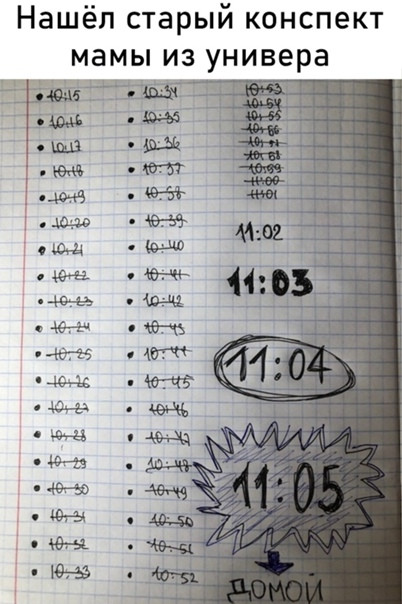 Нашёл старый конспект
мамы из универа
• 10:15
• 10:16
• 10:17
• 10:18
• 10:19
• 10:20
• 10:21
• 10:22
• 10:23
• 10:24
• 10:25
• 10:26
• 10:27
• 10:28
• 10:29
• 10:30
• 10:31
• 10:32
• 10:33
• 10:34
• 10:35
• 10:36
• 10:37
• 10:38
• 10:39
• 10:40
• 10:41
• 10:42
• 10:43
• 10:44
• 10:45
• 10:46
• 10:47
• 10:48
• 10:49
• 10:50
• 10:51
• 10:52
10:53
10:54
10:55
10:56
10:57
10:58
10:59
11:00
11:01
11:02
11:03
11:04
11:05
ДОМОЙ